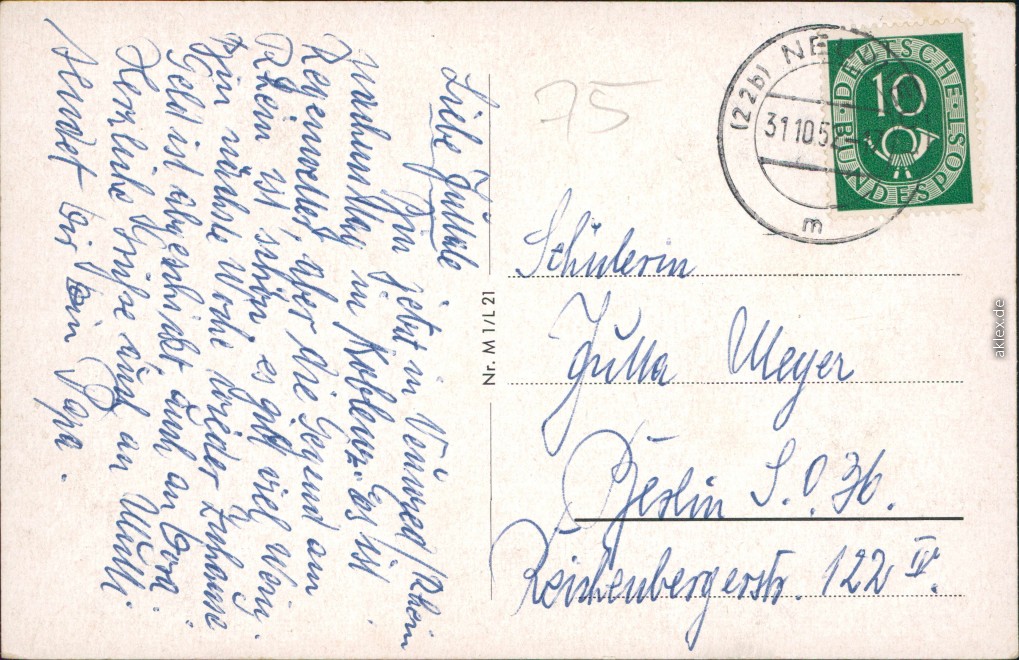 Liebe Jutta
Bin jetzt in Neuwied/Rhein
nachmittag in Koblenz. Es ist
Regenwetter, aber die Gegend am
Rhein ist schön, es gibt viel Wein.
Bin nächste Woche wieder Zuhause
Geld ist abgeschickt auch an
Herzliche Grüße auch an Mutti.
sendet Dir Dein Papa.
75
(22b) NEU
31.10.52
m
DEUTSCHE BUNDESPOST
10
Schülerin
Jutta Meyer
Berlin S.O. 36.
Reichenbergerstr. 122 IV.
Nr. M 1/L 21
aklex.de